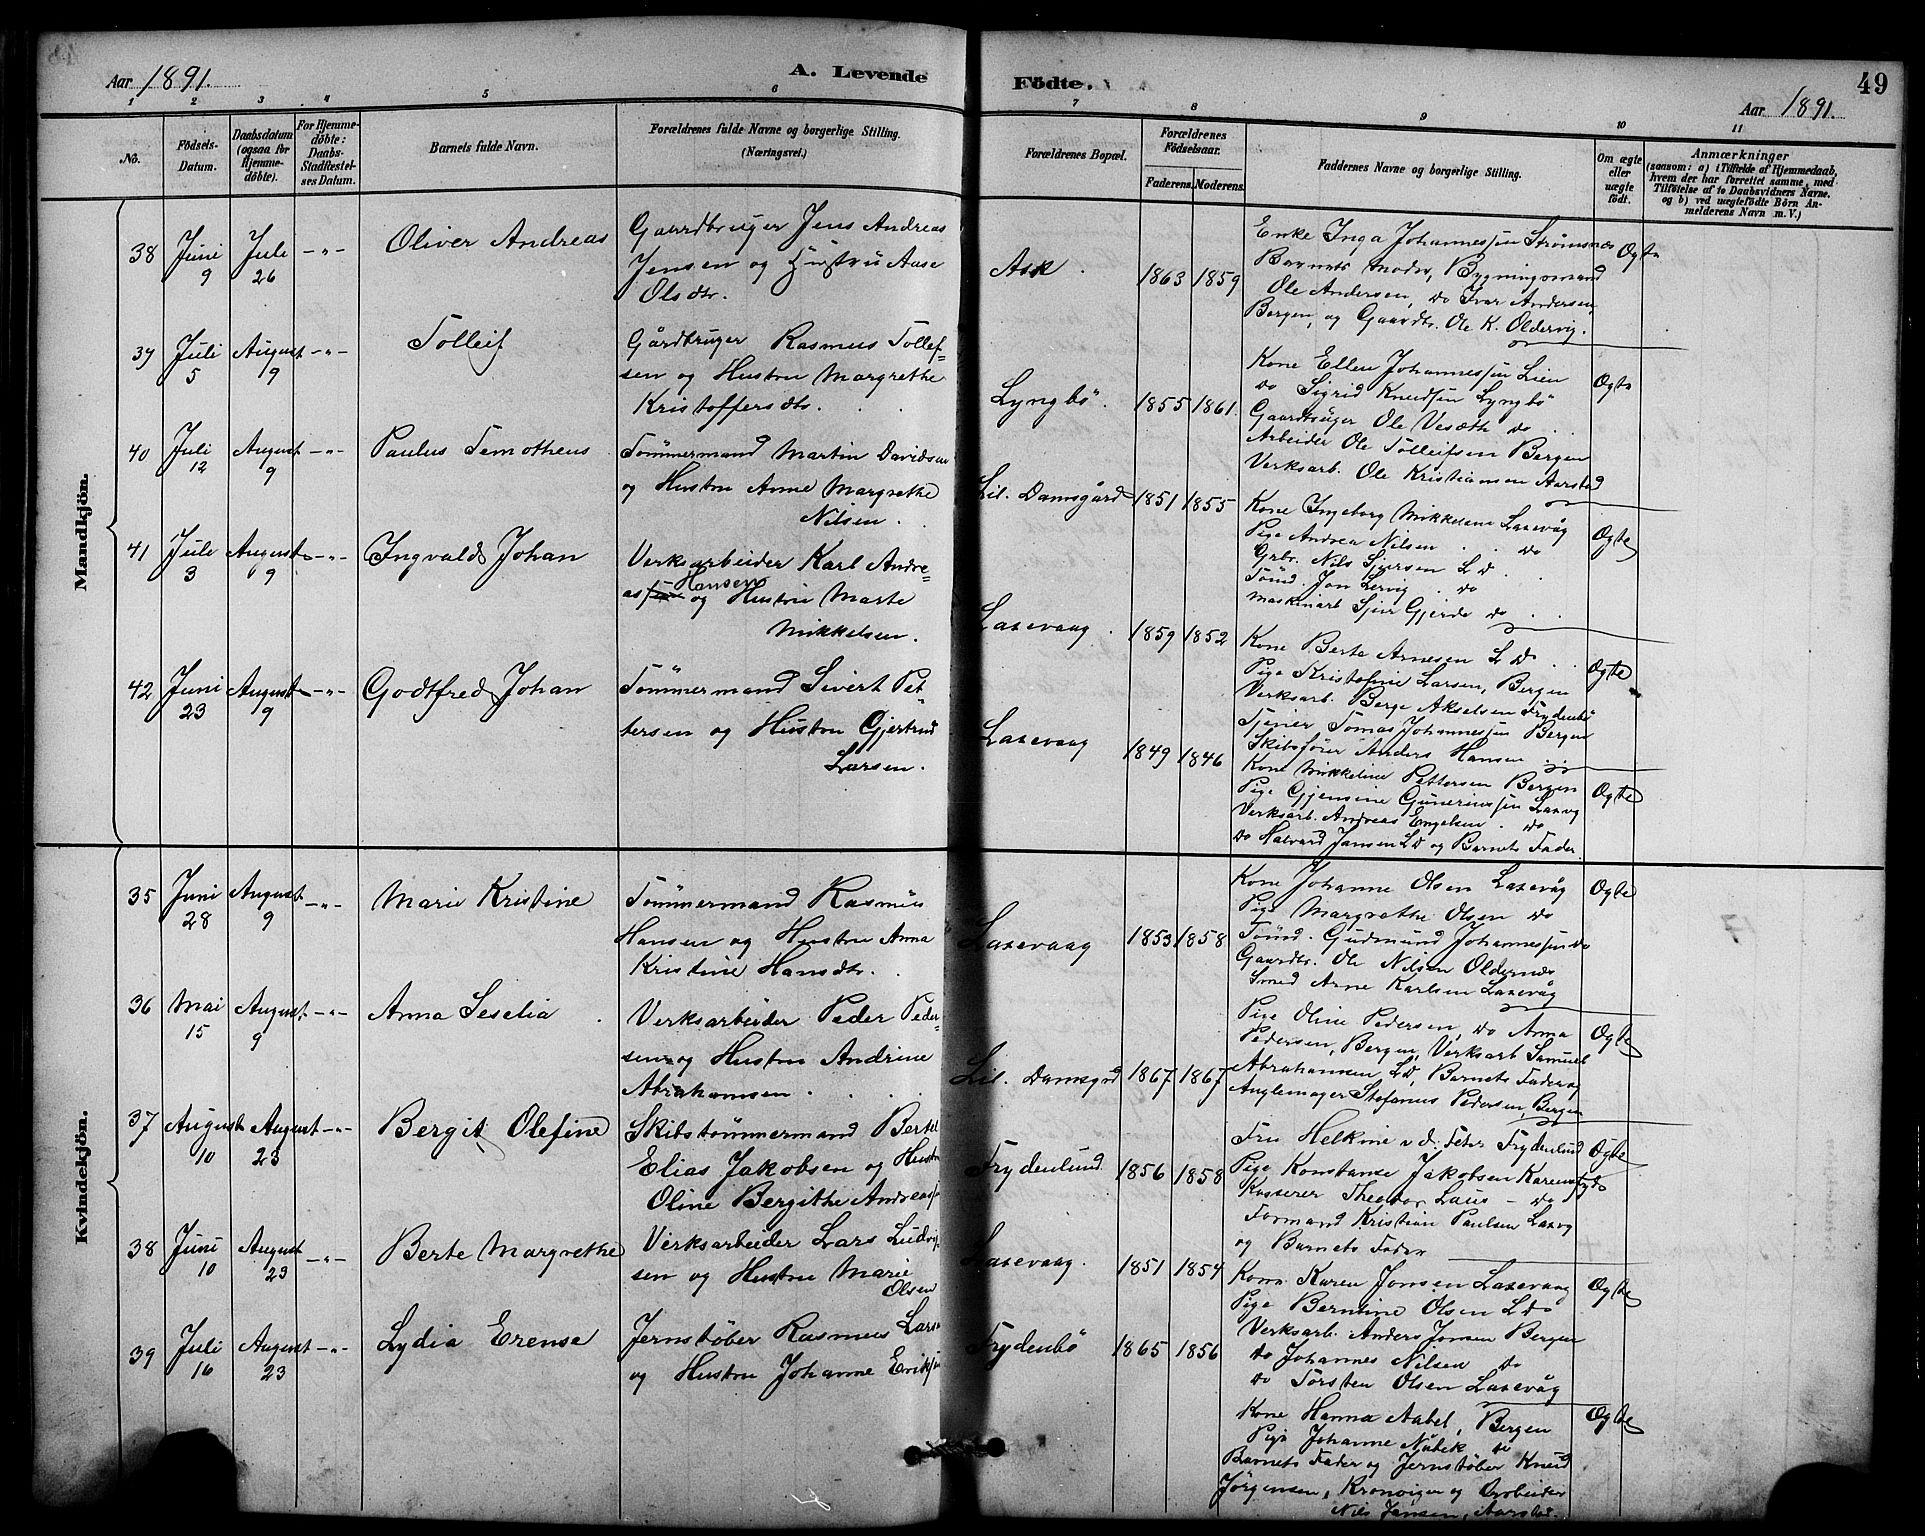 Aar 1891.
A. Levende
Födte.
49
Aar 1891.
1 2 3 4 5 6 7 8 9 10 11
No.
Födsels-Datum.
Daabsdatum (ogsaa for Hjemme-döbte).
For Hjemme-döbte: Daabs-Stadfæstel-ses Datum.
Barnets fulde Navn.
Forældrenes fulde Navne og borgerlige Stilling. (Næringsvei.)
Forældrenes Bopæl.
Forældrenes Födselsaar.
Faderens. Moderens.
Faddernes Navne og borgerlige Stilling.
Om ægte eller uægte födt.
Anmærkninger
(saasom: a) i Tilfælde af Hjemmedaab,
hvem der har forrettet samme, med
Tilföielse af to Daabsvidners Navne,
og b) ved uægtefödte Börn An-
melderens Navn m. V.)
Mandkjön.
38 Juni 9 Juli 26 -"- Oliver Andreas
Gaardbruger Jens Andreas
Jensen og Hustru Aase
Olsdtr.
Ask. 1863 1859
Enke Inga Johannessen Strømsnes
Barnets moder, Bygningsmand
Ole Andersen, do Ivar Andersen,
Bergen, og Gaardbr. Ole K. Oldervig.
Ogte
39 Juli 5 August 9 -"- Tolleif
Gårdbruger Rasmus Tollef-
sen og Hustru Margrethe
Kristoffersdtr.
Lyngbö. 1855 1861.
Kone Ellen Johannessen Lien
do Sigrid Knudsen Lyngbö
Gaardbruger Ole Vesæth do
Arbeider Ole Tolleifsen Bergen
Verksarb. Ole Kristiansen Aarstad
Ogte
40 Juli 12 August 9 -"- Paulus Temotheus
Tømmermand Martin Davidsen
og Hustru Anne Margrethe
Nilsen.
Lil. Damsgård 1851 1855
Kone Ingeborg Mikkelsen Laxevåg
Pige Andrea Nilsen do
Grbr. Nils Sjursen L D.
Tømd. Jon Lervig. do
Maskinarb Sjur Gjerde do
Ogte
41 Juli 3 August 9 -"- Ingvald Johan
Verksarbeider Karl Andre-
as Hansen og Hustru Marte
Mikkelsen.
Laxevaag. 1859 1852
Kone Berte Arnesen L D.
Pige Kristofine Larsen, Bergen
Verksarb. Berge Akselsen Frydenbö
Tjener Tomas Johannessen Bergen
Skibsfører Anders Hansen
Ogte
42 Juni 23 August 9 -"- Godtfred Johan
Tømmermand Sivert Pet
tersen og Hustru Gjertrud
Larsen.
Laxevaag 1849 1846
Kone Mikkeline Pettersen Bergen
Pige Gjensine Gunerius­sen Laxvg
Verksarb. Andreas Engelsen. do
do Halvard Jansen L D og Barnets Fader.
Ogte
Kvindekjön.
35 Juni 28 August 9 -"- Marie Kristine
Tømmermand Rasmus
Hansen og Hustru Anna
Kristine Hansdtr.
Laxevaag 1853 1858
Kone Johanne Olsen Laxevåg
Pige Margrethe Olsen do
Tømd. Gudmund Johannessen do
Gaardbr. Ole Nilsen Oldernes
Smed Arne Karlsen Laxevåg
Ogte
36 Mai 15 August 9 -"- Anna Seselia
Verksarbeider Peder Peder-
sen og Hustru Andrine
Abrahamsen.
Lil. Damsgrd 1867 1867
Pige Oline Pedersen, do Anna
Pedersen, Bergen, Verksarb Samuel
Abrahamsen L D, Barnets Fader og
Anglemager Stefanus Pedersen, Bergen
Ogte
37 August 10 August 23 -"- Bergit Olefine
Skibstømmermand Bertel
Elias Jakobsen og Hustru
Oline Bergithe Andreas
Frydenlund. 1856 1858
Fru Helkine v.d. Feter Frydenlund
Pige Konstanse Jakobsen
Kasserer Theodor Laus - do
Formand Kristian Paulsen Laxvg
og Barnets Fader
Ogte
38 Juni 10 August 23 -"- Berte Margrethe
Verksarbeider Lars Ludvig
sen og Hustru Marie
Olsen
Laxevaag. 1851 1854
Kone Karen Jonsen Laxevaag
Pige Berntine Olsen L D
Verksarb. Anders Jonsen Bergen
do Johannes Nilsen do
do Torsten Olsen Laxevåg
Ogte
39 Juli 16 August 23 -"- Lydia Erense
Jernstøber Rasmus Larse
og Hustru Johanne Erik
Frydenbö 1865 1856
Kone Hanna Aabel, Bergen
Pige Johanne Nübek do
Barnets Fader og Jernstøber Knud
Jörgensen, Kronvigen og Arbeider
Nils Jansen, Aarstad.
Ogte